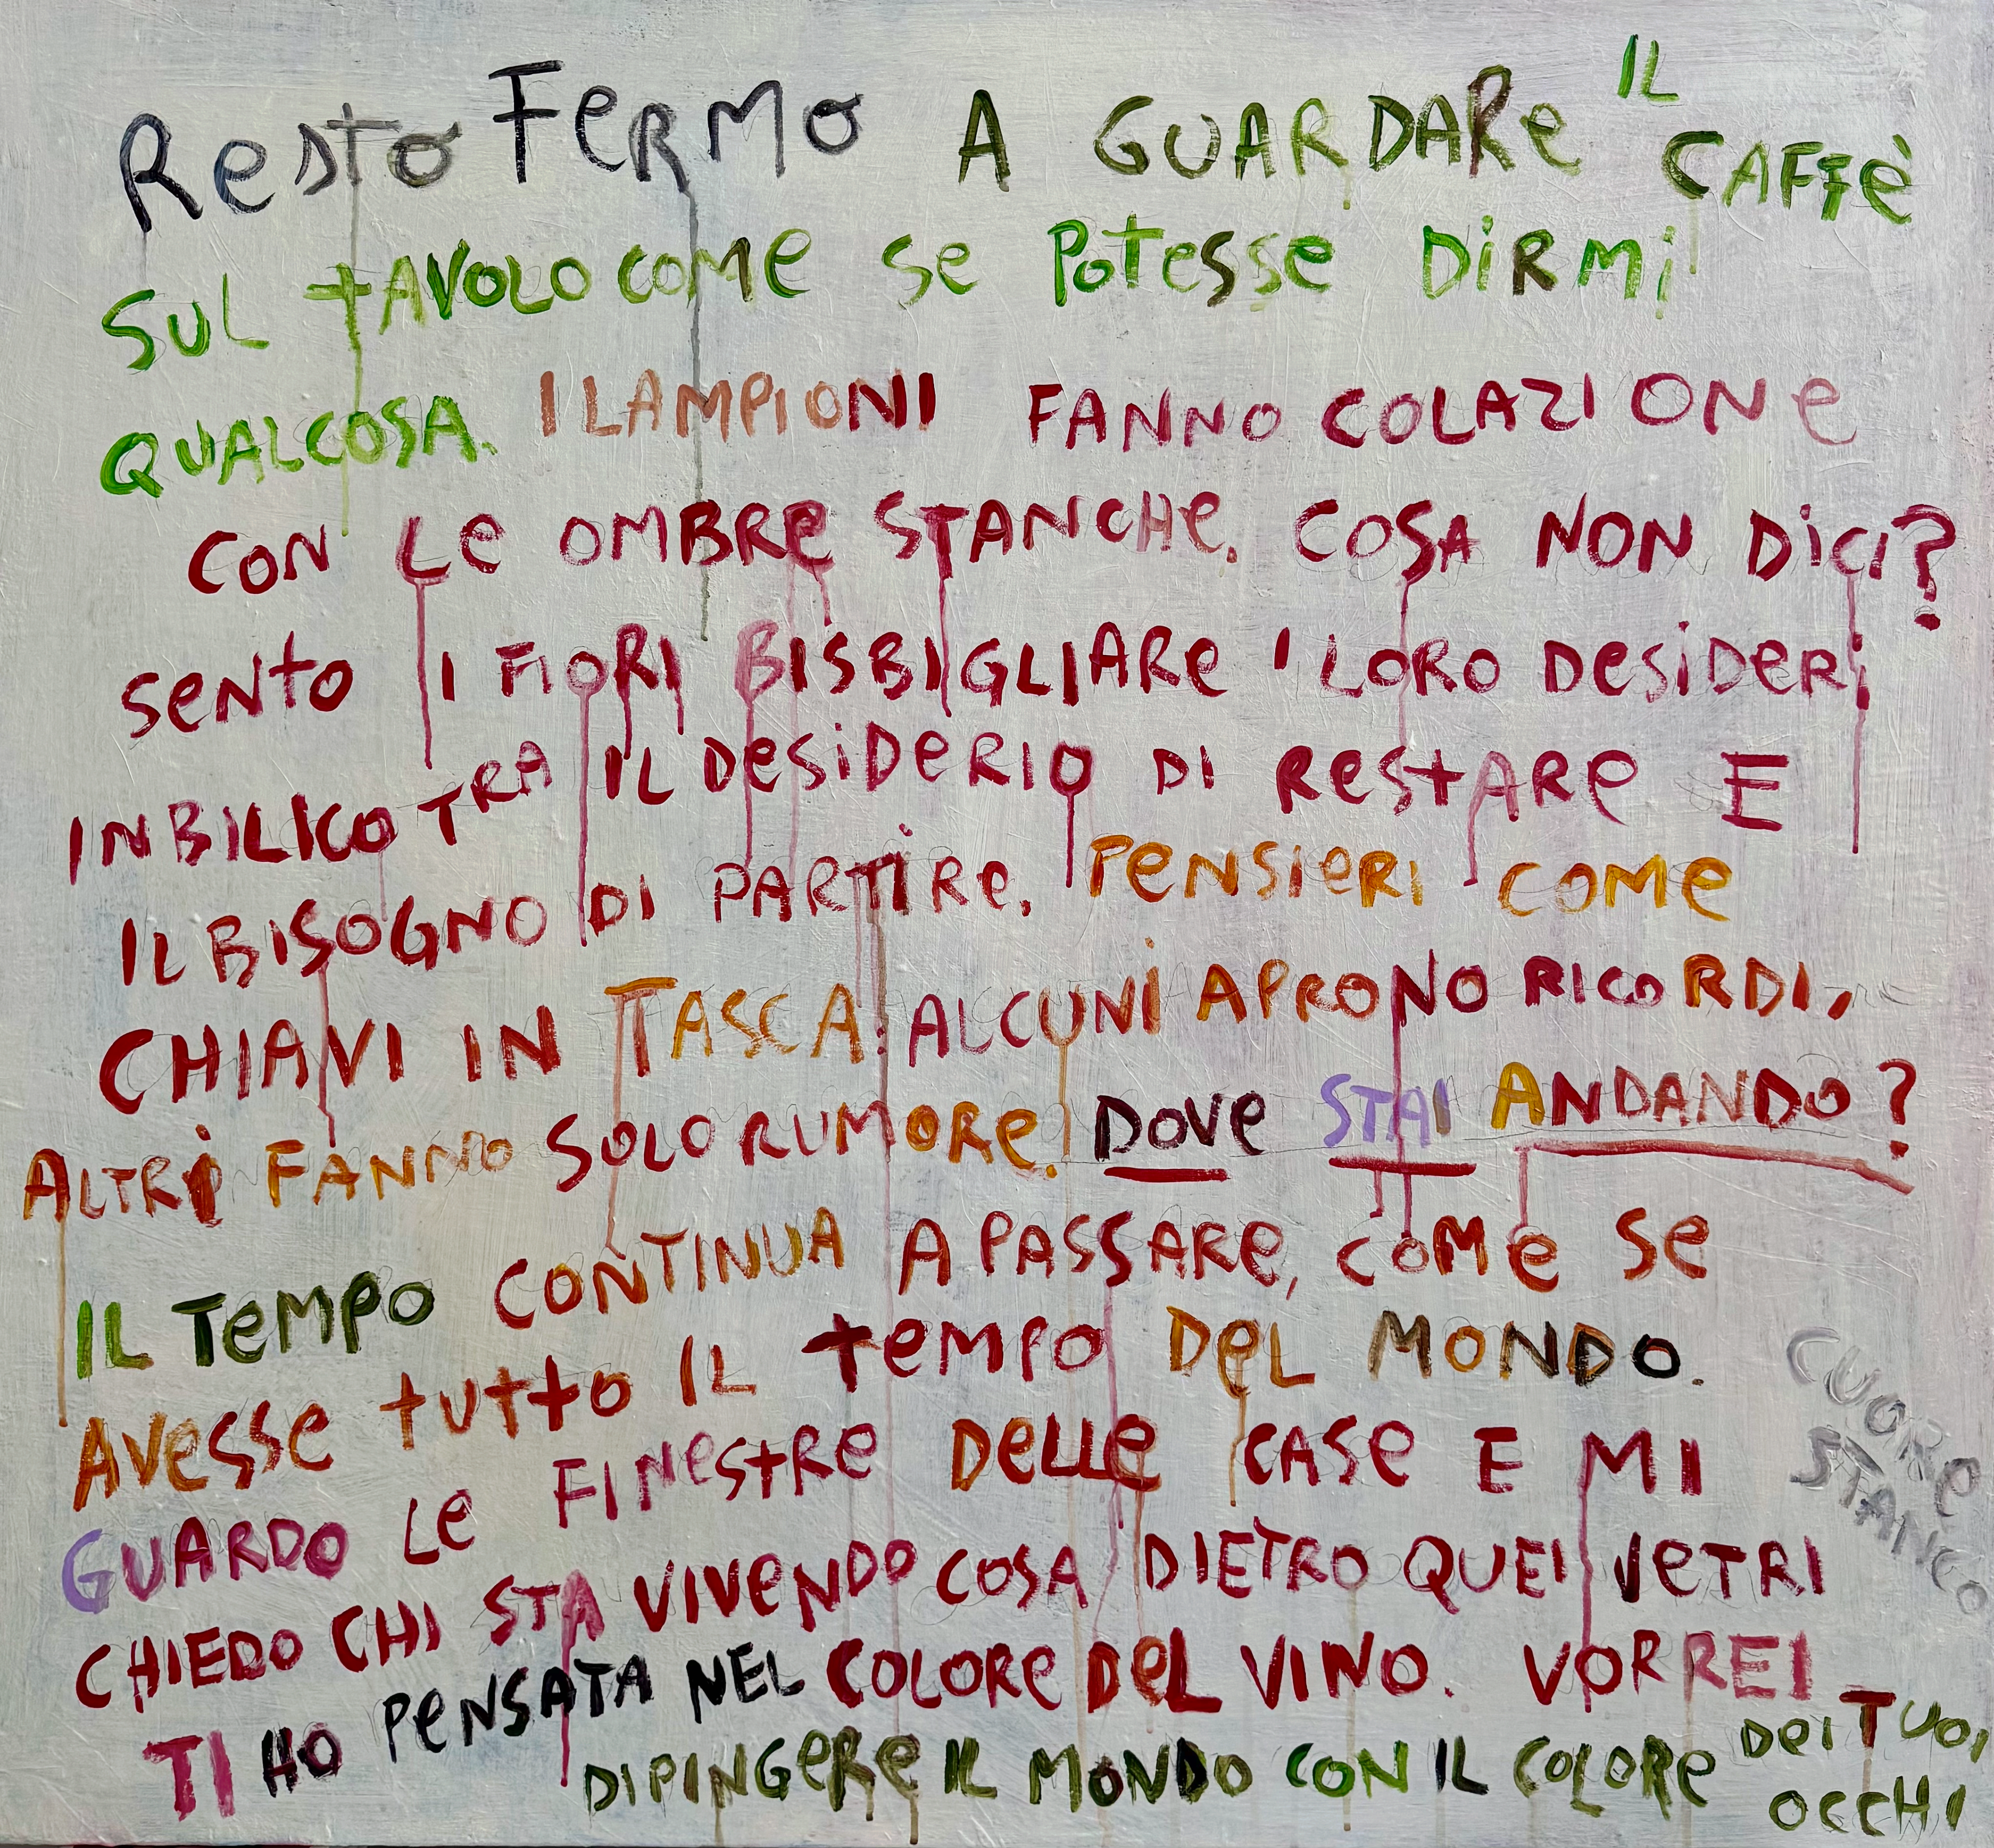 Resto FeRMO A GUARDARe IL CAFFè
SUL tAVOLO COMe Se PoTesse DiRMi
QUALCOSA. I LAMPIONI FANNO COLAZIONe
CON Le OMBRe STANCHe. COSA NON DiCI?
SeNto I FIORI BISBIGLIARe I LORO DeSiDeRi
IN BILICO TRA IL DeSiDeRIO DI ReStARe E
IL BISOGNO DI PARTiRe. PeNSIeRI COMe
CHIAVI IN TASCA: ALCUNi APRONO RICORDI,
ALTRi FANNO SOLO RUMORe. DOVe STAI ANDANDO?
IL TeMPO CONTINUA A PASSARe, COMe Se
AVesse tUttO IL teMPO DeL MONDO.
GUARDO Le FINeStRe DeLLe CASe E MI
CHIEDO CHI STA VIVeNDO COSA DIETRO QUEI VeTRI
TI HO PeNSATA NEL COLORe DeL VINO. VORREI
DIPINGeRe IL MONDO CON IL COLORe DeI TUOI
OCCHI
CUORe
STANCO